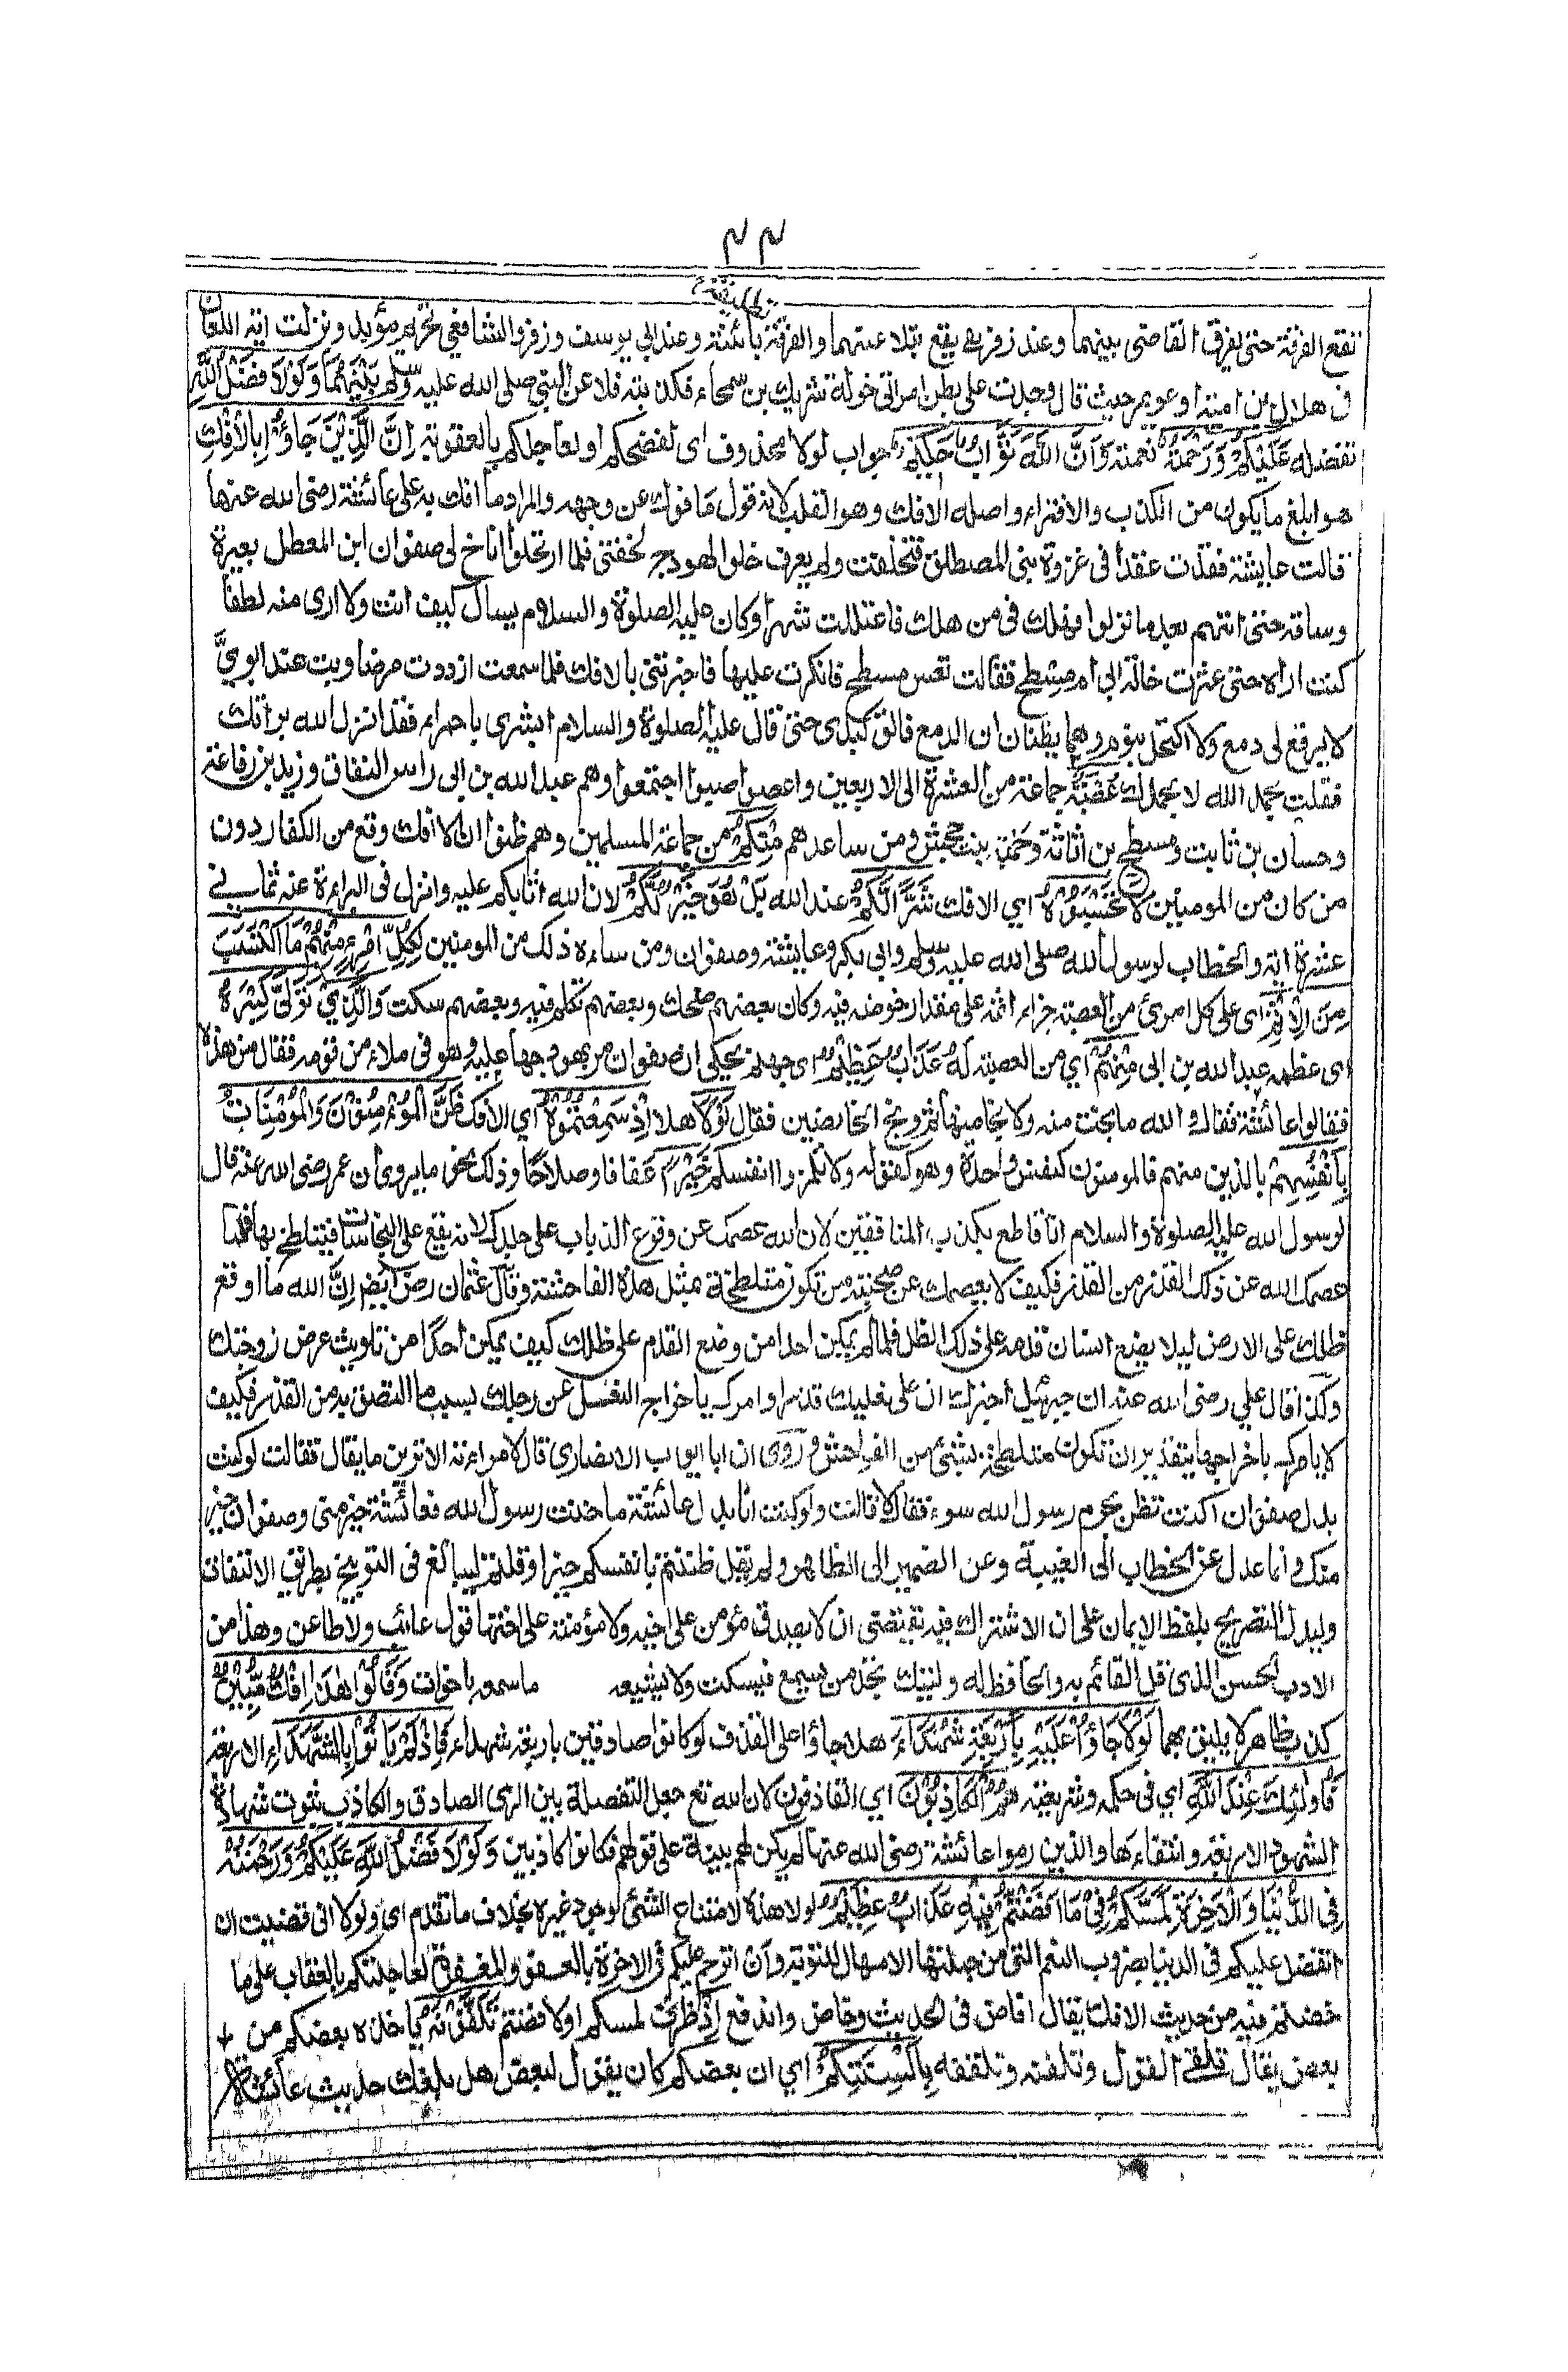 ٤٤
تقع الفرقة حتى يفرق القاضى بينهما وعند زفر رح يقع بتلاعنهما والفرقة بائنة وعند ابي يوسف وزفر والشافعي تحريم مؤبد ونزلت اية اللعان
فى هلال بن امية او عويمر حيث قال وجدت على بطن امراتى خولة شريك بن سمحاء فكذبته فلاعن النبي صلى الله عليه وسلم بينهما وَلَوْلَا فَضْلُ اللّٰهِ
تفضله عَلَيْكُمْ وَرَحْمَتُهٗ نعمته وَاَنَّ اللّٰهَ تَوَّابٌ حَكِيْمٌ جواب لولا محذوف اى لفضحكم او لعاجلكم بالعقوبة اِنَّ الَّذِيْنَ جَاؤُا بِالْاِفْكِ
هو ابلغ ما يكون من الكذب والافتراء واصله الافك وهو القلب لانه قول مافوك عن وجهه والمراد ما افك به على عائشة رضى الله عنها
قالت عايشة فقدت عقدا فى غزوة بنى المصطلق فتخلفت ولم يعرف خلو الهودج لخفتى فلما ارتحلوا اناخ لى صفوان ابن المعطل بعيرة
وساقه حتى اتتهم بعد ما نزلوا فهلك فى من هلك فاعتللت شهرا وكان عليه الصلوة والسلام يسال كيف انت ولا ارى منه لطفا
كنت اراه حتى عثرت خالة ابي ام مسطح فقالت تعس مسطح فانكرت عليها فاخبرتنى بالافك فلما سمعت ازددت مرضا وبت عند ابويّ
لا يرقع لى دمع ولا اكتحل بنوم وهما يظنان ان الدمع فالق كبدى حتى قال عليه الصلوة والسلام ابشرى يا حمراء فقد انزل الله براتك
فقلت بحمد الله لا بحمدك عُصْبَةٌ جماعة من العشرة الى الاربعين واعصوصبوا اجتمعوا وهم عبد الله بن ابى راس النفاق وزيد بن رفاعة
وحسان بن ثابت ومسطح بن اثاثة وحمنة بنت جحش ومن ساعدهم مِنْكُمْ من جماعة المسلمين وهم ظنوا ان الافك وقع من الكفار دون
من كان من المومنين لَا تَحْسَبُوْهُ اي الافك شَرًّا لَّكُمْ عند الله بَلْ هُوَ خَيْرٌ لَّكُمْ لان الله اثابكم عليه وانزل فى البراءة عنه ثمانى
عشرة اية والخطاب لرسول الله صلى الله عليه وسلم وابى بكر وعايشة وصفوان ومن ساءه ذلك من المومنين لِكُلِّ امْرِئٍ مِنْهُمْ مَا اكْتَسَبَ
مِنَ الْاِثْمِ اى على كل امرئ من العصبة جزاء اثمه على مقدار خوضه فيه وكان بعضهم ضحك وبعضهم تكلم فيه وبعضهم سكت وَالَّذِيْ تَوَلّٰى كِبْرَهٗ
اى عظمه عبد الله بن ابى مِنْهُمْ أي من العصبة لَهٗ عَذَابٌ عَظِيْمٌ اى جهنم يحكى ان صفوان مر بهودجها عليه وهو فى ملاء من قومه فقال من هذه
فقالوا عائشة فقال والله ما نجت منه ولا نجا منها ثم وبخ الخايضين فقال لَوْلَا هلا اِذْ سَمِعْتُمُوْهُ اي الافك ظَنَّ الْمُؤْمِنُوْنَ وَالْمُؤْمِنَاتُ
بِاَنْفُسِهِمْ بالذين منهم فالمومنون كنفس واحدة وهو كقوله ولا تلمزوا انفسكم خَيْرًا عفافا وصلاحا وذلك نحو ما يروى ان عمر رضى الله عنه قال
لرسول الله عليه الصلوة والسلام انا قاطع بكذب المنافقين لان الله عصمك عن وقوع الذباب على جلدك لانه يقع على النجاسات فيتلطخ بها فلما
عصمك الله عن ذلك القدر من القذر فكيف لا يعصمك عن صحبة من تكون متلطخة بمثل هذه الفاحشة وقال عثمان رض ايضا ان الله ما اوقع
ظلك على الارض ليلا يضع انسان قدمه على ذلك الظل فلما لم يمكن احدا من وضع القدم على ظلك كيف يمكن احدًا من تلويث عرض زوجتك
وكذا قال علي رضى الله عنه ان جبرئيل اخبرك ان على نعليك قذرا وامرك باخراج النعل عن رجلك بسبب ما التصق به من القذر فكيف
لا يامرك باخراجها بتقدير ان تكون متلطخة بشئ من الفواحش وروى ان ابا ايوب الانصارى قال لامراءته الا ترين ما يقال فقالت لو كنت
بدل صفوان اكنت تظن بحرم رسول الله سوء فقال لا قالت ولو كنت انا بدل عائشة ما خنت رسول الله فعائشة خير منى وصفوان خير
منك وانما عدل عن الخطاب الى الغيبة وعن الضمير الى الظاهر ولم يقل ظننتم بانفسكم خيرا وقلتم ليبالغ فى التوبيخ بطريق الالتفات
وليدل التصريح بلفظ الايمان على ان الاشتراك فيه يقتضى ان لا يصدق مؤمن على اخيه ولا مؤمنة على اختها قول عائب ولا طاعن وهذا من
الادب الحسن الذى قل القائم به والحافظ له وليتك تجد من يسمع فيسكت ولا يشيعه ما سمعه باخوات وَقَالُوْا هٰذَا اِفْكٌ مُّبِيْنٌ
كذب ظاهر لا يليق بهما لَوْلَا جَاؤُا عَلَيْهِ بِاَرْبَعَةِ شُهَدَاءَ هلا جاؤا على القذف لو كانوا صادقين باربعة شهداء فَاِذْ لَمْ يَاْتُوْا بِالشُّهَدَاءِ الاربعة
فَاُولٰئِكَ عِنْدَ اللّٰهِ اي فى حكمه وشريعته هُمُ الْكَاذِبُوْنَ اي القاذفون لان الله تع جعل التفصلة بين الرمى الصادق والكاذب بثبوت شهادة
الشهود الاربعة وانتفاءها والذين رموا عائشة رضى الله عنها لم يكن لهم بينة على قولهم فكانوا كاذبين وَلَوْلَا فَضْلُ اللّٰهِ عَلَيْكُمْ وَرَحْمَتُهٗ
فِى الدُّنْيَا وَالْاٰخِرَةِ لَمَسَّكُمْ فِىْ مَا اَفَضْتُمْ فِيْهِ عَذَابٌ عَظِيْمٌ لولا هذه لامتناع الشئ لوجود غيره بخلاف ما تقدم اى ولولا انى قضيت ان
اتفضل عليكم فى الدنيا بضروب النعم التى من جملتها الامهال للتوبة وان اترحم عليكم فى الاخرة بالعفو والمغفرة لعاجلتكم بالعقاب على ما
خضتم فيه من حديث الافك يقال افاض فى الحديث وخاض واندفع اِذْ ظرف لمسكم او لافضتم تَلَقَّوْنَهٗ ياخذه بعضكم من
بعض يقال تلقى القول وتلقنه وتلقفه بِاَلْسِنَتِكُمْ اي ان بعضكم كان يقول لبعض هل بلغك حديث عائشة